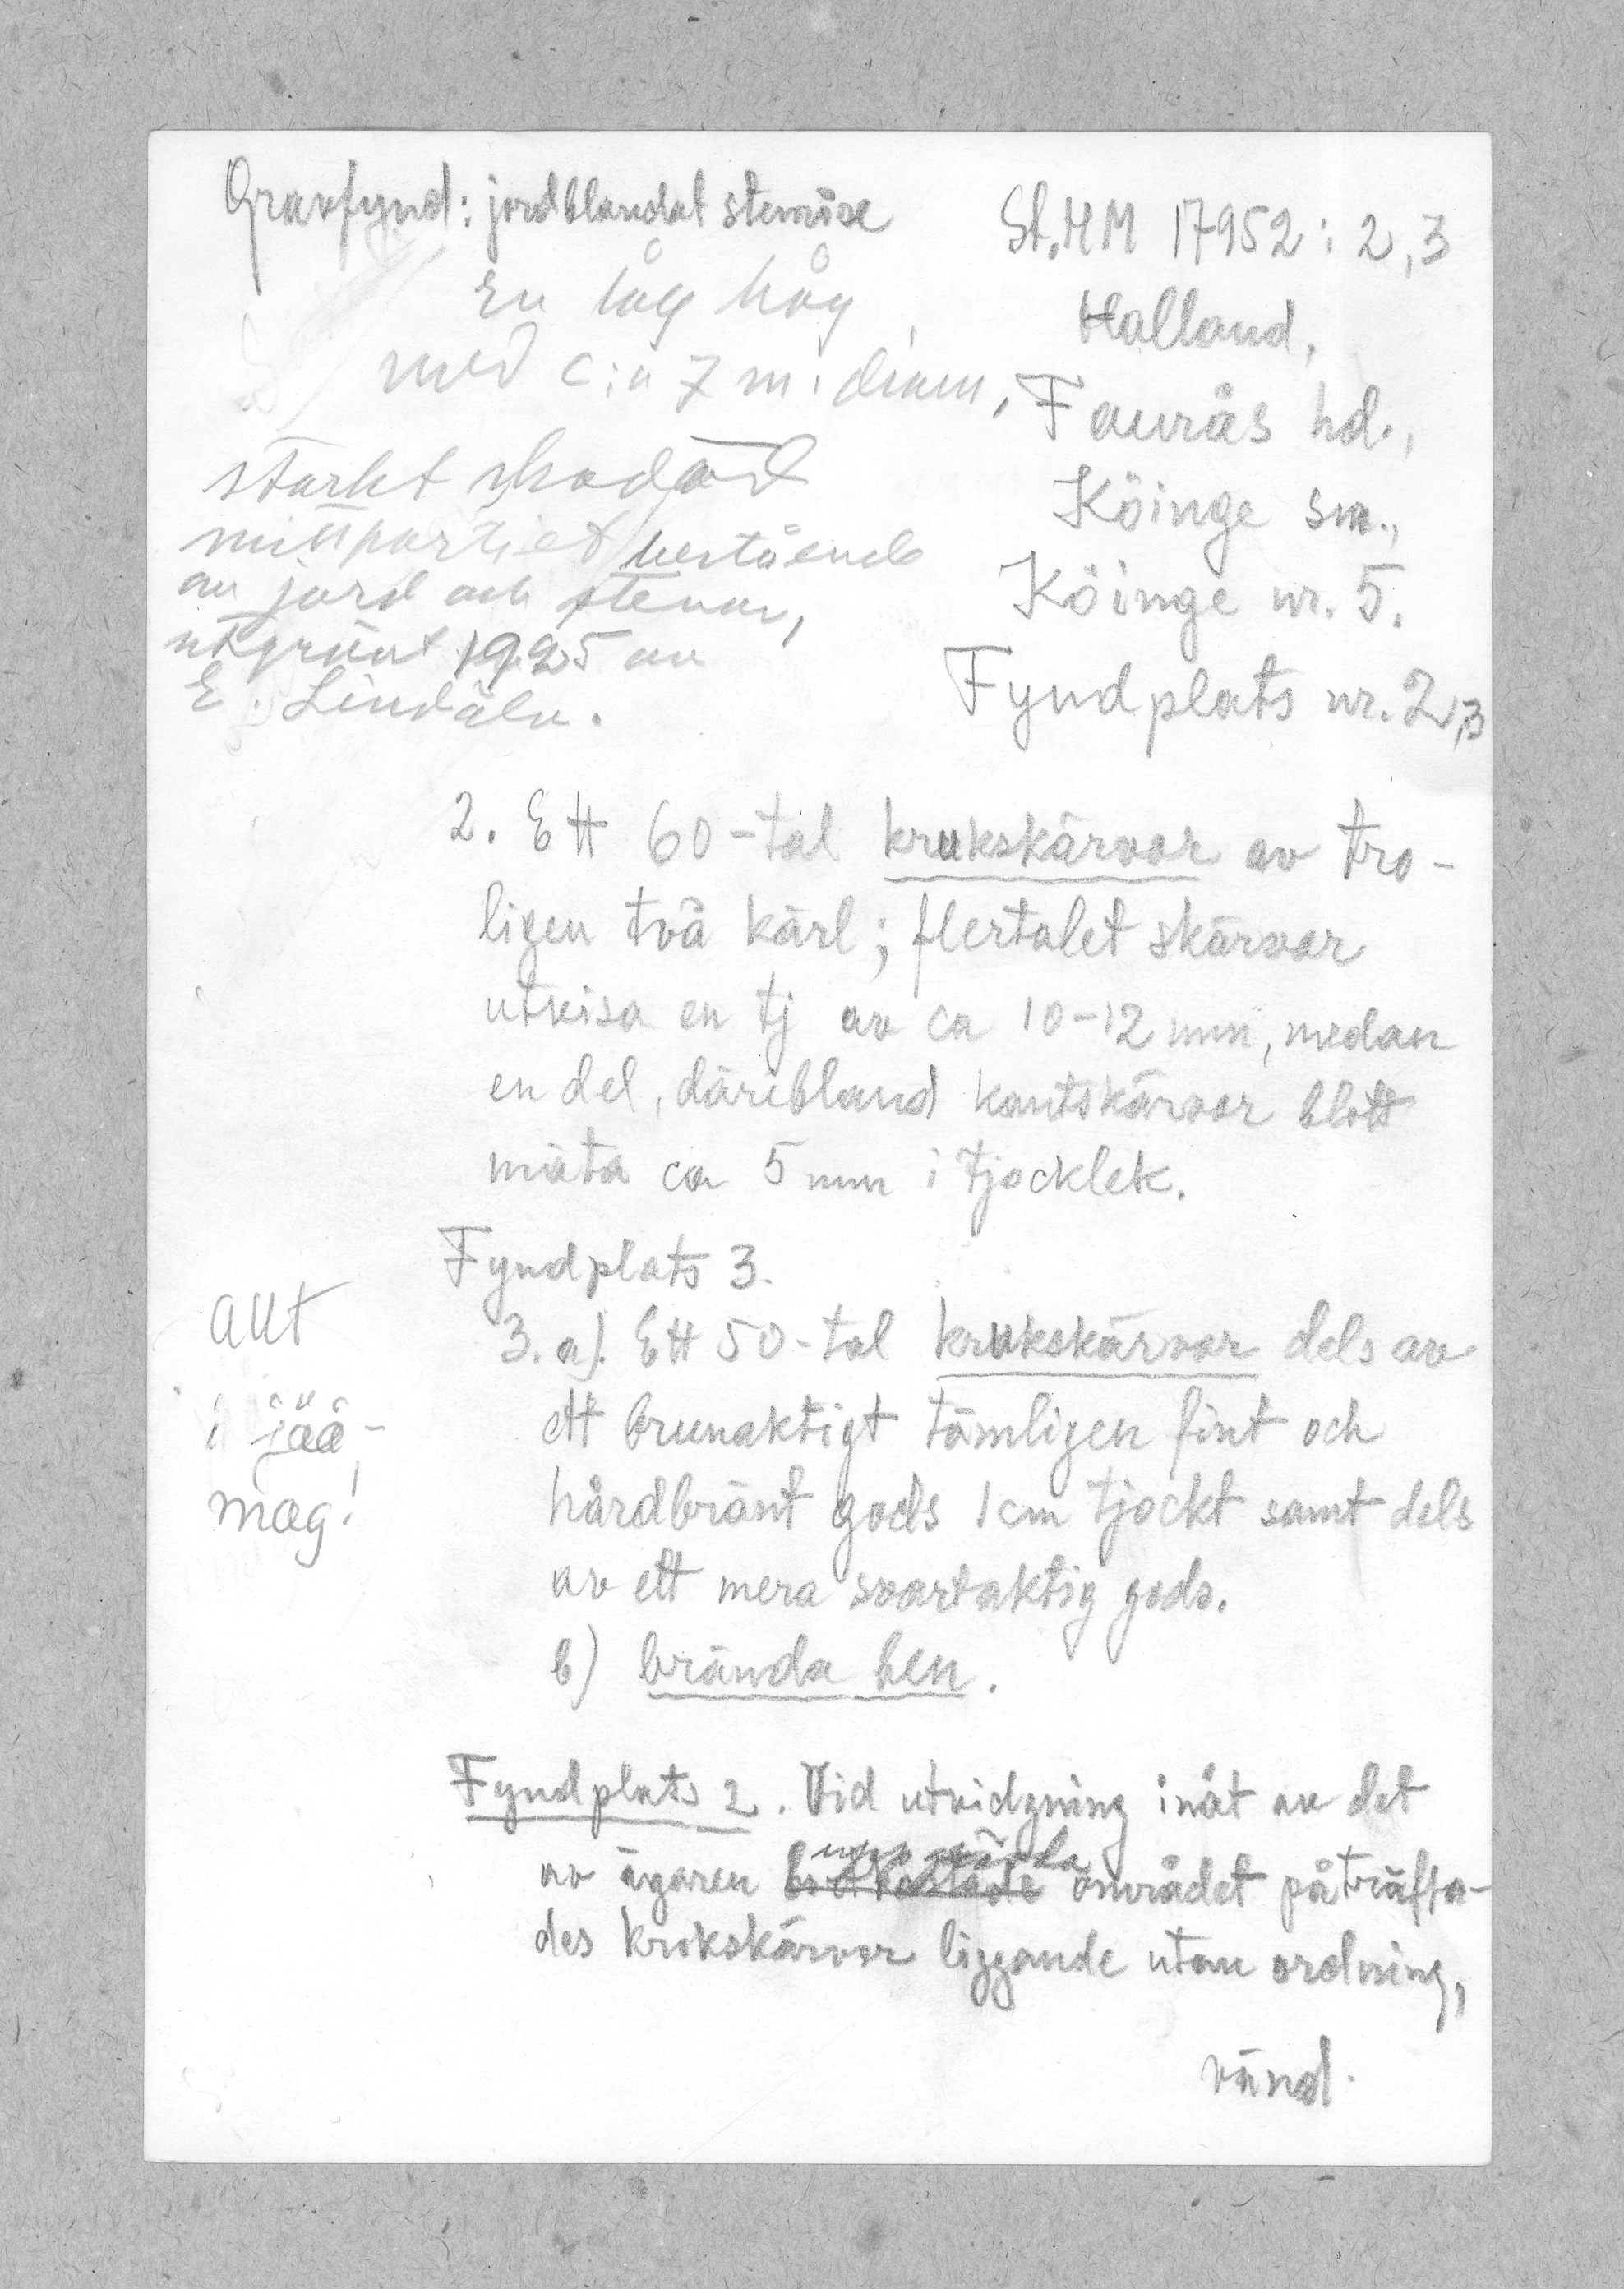 Gravfynd: jordblandat stenröse
En låg hög
med c:a 7 m. diam,
starkt skadad
mittpartiet bestående
av jord och stenar,
utgrävt 1925 av
E. Lindälv.
St.HM 17952: 2,3
Halland,
Faurås hd.,
Köinge sn.,
Köinge nr. 5.
Fyndplats nr. 2,3
2. Ett 60-tal krukskärvor av tro-
ligen två kärl; flertalet skärvor
utvisa en tj av ca 10-12 mm, medan
en del, däribland kantskärvor blott
mäta ca 5 mm i tjocklek.
Fyndplats 3.
3. a). Ett 50-tal krukskärvor dels av
ett brunaktigt tämligen fint och
hårdbränt gods 1 cm tjockt samt dels
av ett mera svartaktig gods.
b) brända ben.
allt
i jåä-
mag!
Fyndplats 2. Vid utvidgning inåt av det
av ägaren bortkastade området påträffa-
des krukskärvor liggande utan ordning,
vänd.